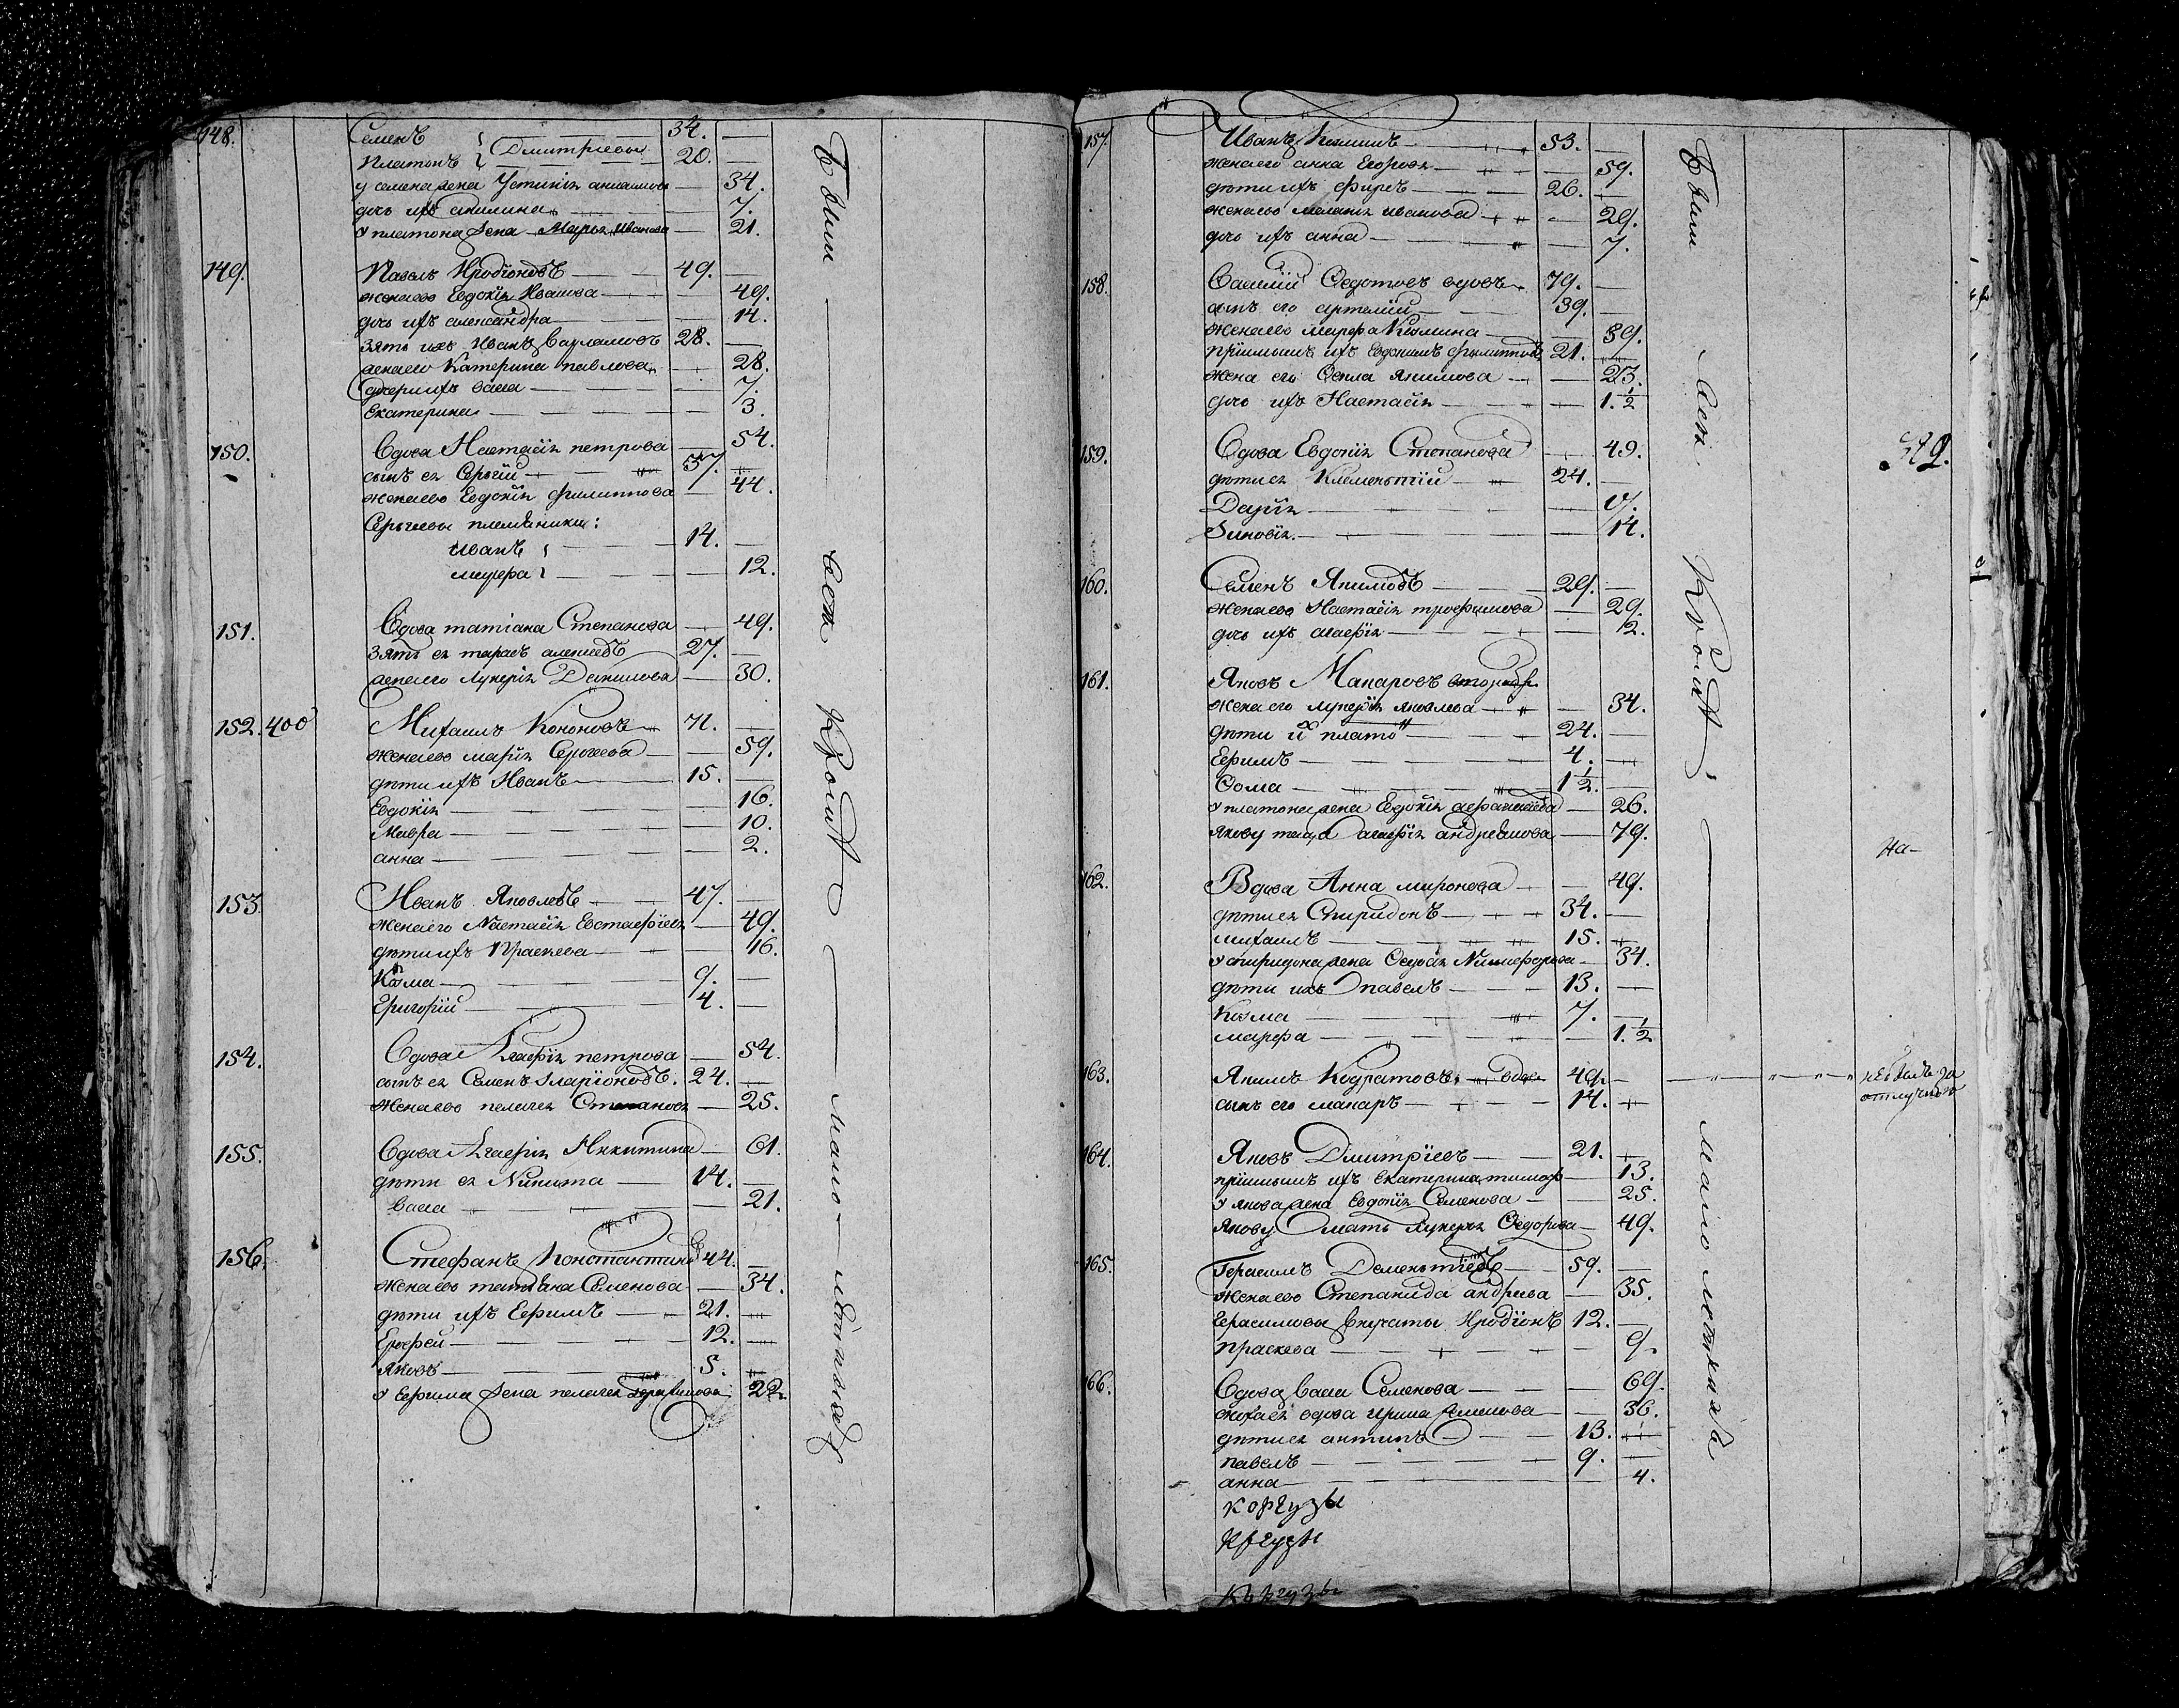 148. Семенъ 34. —
Платонъ } Дмитріевы 20. —
у семена жена Устинія — 34.
дочь ихъ акилина — 7.
у платона жена Марья Иванова — 21.
149. Павелъ Иродіоновъ 49. —
жена его Евдокія Иванова — 49.
дочь ихъ александра — 14.
зять ихъ Иванъ Варламовъ 28. —
жена его Катерина павлова — 28.
дочери ихъ васса — 7.
екатерина — 3.
150. Вдова Настасія петрова — 54.
сынъ ея Сергій 37. —
жена его Евдокія филиппова — 44.
Сергіевы племянники:
иванъ 14. —
— 12.
151. Вдова татіана Степанова — 49.
зять ея тарасъ алексеевъ 27. —
жена его Лукерія Данилова — 30.
152. 400 Михаилъ Кононовъ 71. —
жена его марія Сергеева — 59.
дѣти ихъ Иванъ 15. —
Евдокія — 16.
Мавра — 10.
анна — 2.
153. Иванъ Яковлевъ 47. —
жена его Настасія Евстафіева — 49.
дѣти ихъ Праскева — 16.
Козма 9. —
Григорій 4. —
154. Вдова Агафія петрова — 54.
сынъ ея Семенъ Иларіоновъ. 24. —
жена его пелагея Степанова — 25.
155. Вдова Агафія Никитина — 61.
дѣти ея Никита 14. —
васса — 21.
156. Стефанъ Константиновъ 44. —
жена его татіана Семенова — 34.
дѣти ихъ Ефимъ 21. —
Ерофей 12. —
Яковъ 5. —
у Ефима жена пелагея — 22.
Были — всѣ Кромѣ — мало-лѣтныхъ
157. Иванъ Козминъ 53. —
жена его анна Егорова — 59.
дѣти ихъ фирсъ 26. —
жена его меланія иванова — 29.
дочь ихъ анна — 7.
158. Василій Ѳедотовъ вдовъ 79. —
сынъ его артемій 39. —
жена его марфа Козмина — 39.
пріимышъ ихъ Евдокимъ филипповъ 21. —
жена его Ѳекла якимова — 23.
дочь ихъ Настасія — 1. 1/2
159. Вдова Евдокія Степанова — 49.
дѣти ея Клементій 24. —
Дарія — 17.
Зиновія — 14.
160. Семенъ Якимовъ 29. —
жена его Настасія трофимова — 29.
дочь ихъ агафія — 12.
161. Яковъ Макаровъ
жена его лукерія яковлева — 34.
дѣти их платонъ 24. —
Ефимъ 4. —
Ѳома 1 1/2. —
у платона жена Евдокія афанасьева — 26.
якову теща агафія андреянова — 79.
162. Вдова Анна миронова — 49.
дѣти ея Спиридонъ 34. —
михаилъ 15. —
у спиридона жена Ѳедосія Никифорова — 34.
дѣти ихъ павелъ 13. —
Козма 7. —
марфа — 1. 1/2
163. Якимъ Кодратовъ вдов 49. —
сынъ его макаръ 14. —
164. Яковъ Дмитріевъ 21. —
пріимышъ ихъ екатерина — 13.
у якова жена Евдокія Семенова — 25.
якову мать лукерья Ѳедорова — 49.
165. Герасимъ Дементіевъ 59. —
жена его Степанида андреева — 35.
герасимовы внучаты Иродіонъ 12. —
праскева — 9.
166. Вдова васса Семенова — 69.
сноха ея вдова ирина — 36.
дѣти ея антипъ 13. —
павелъ 9. —
анна — 4.
коргузы
кргузы
Были — всѣ Кромѣ — мало лѣтнихъ
не былъ за отлучкою
на-